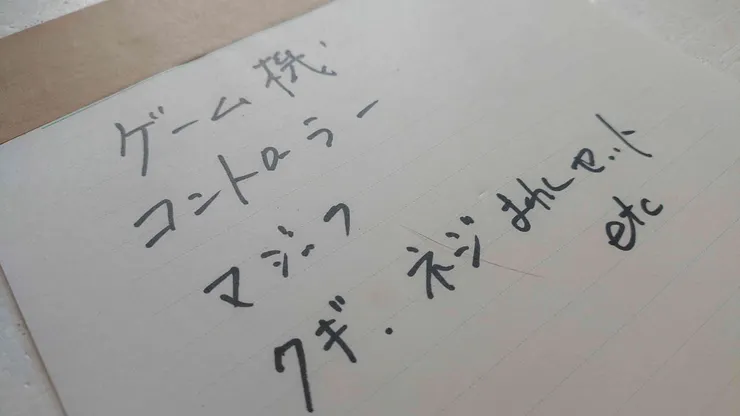 ゲーム機
コントローラー
マジック
クギ.ネジまわしセット
etc